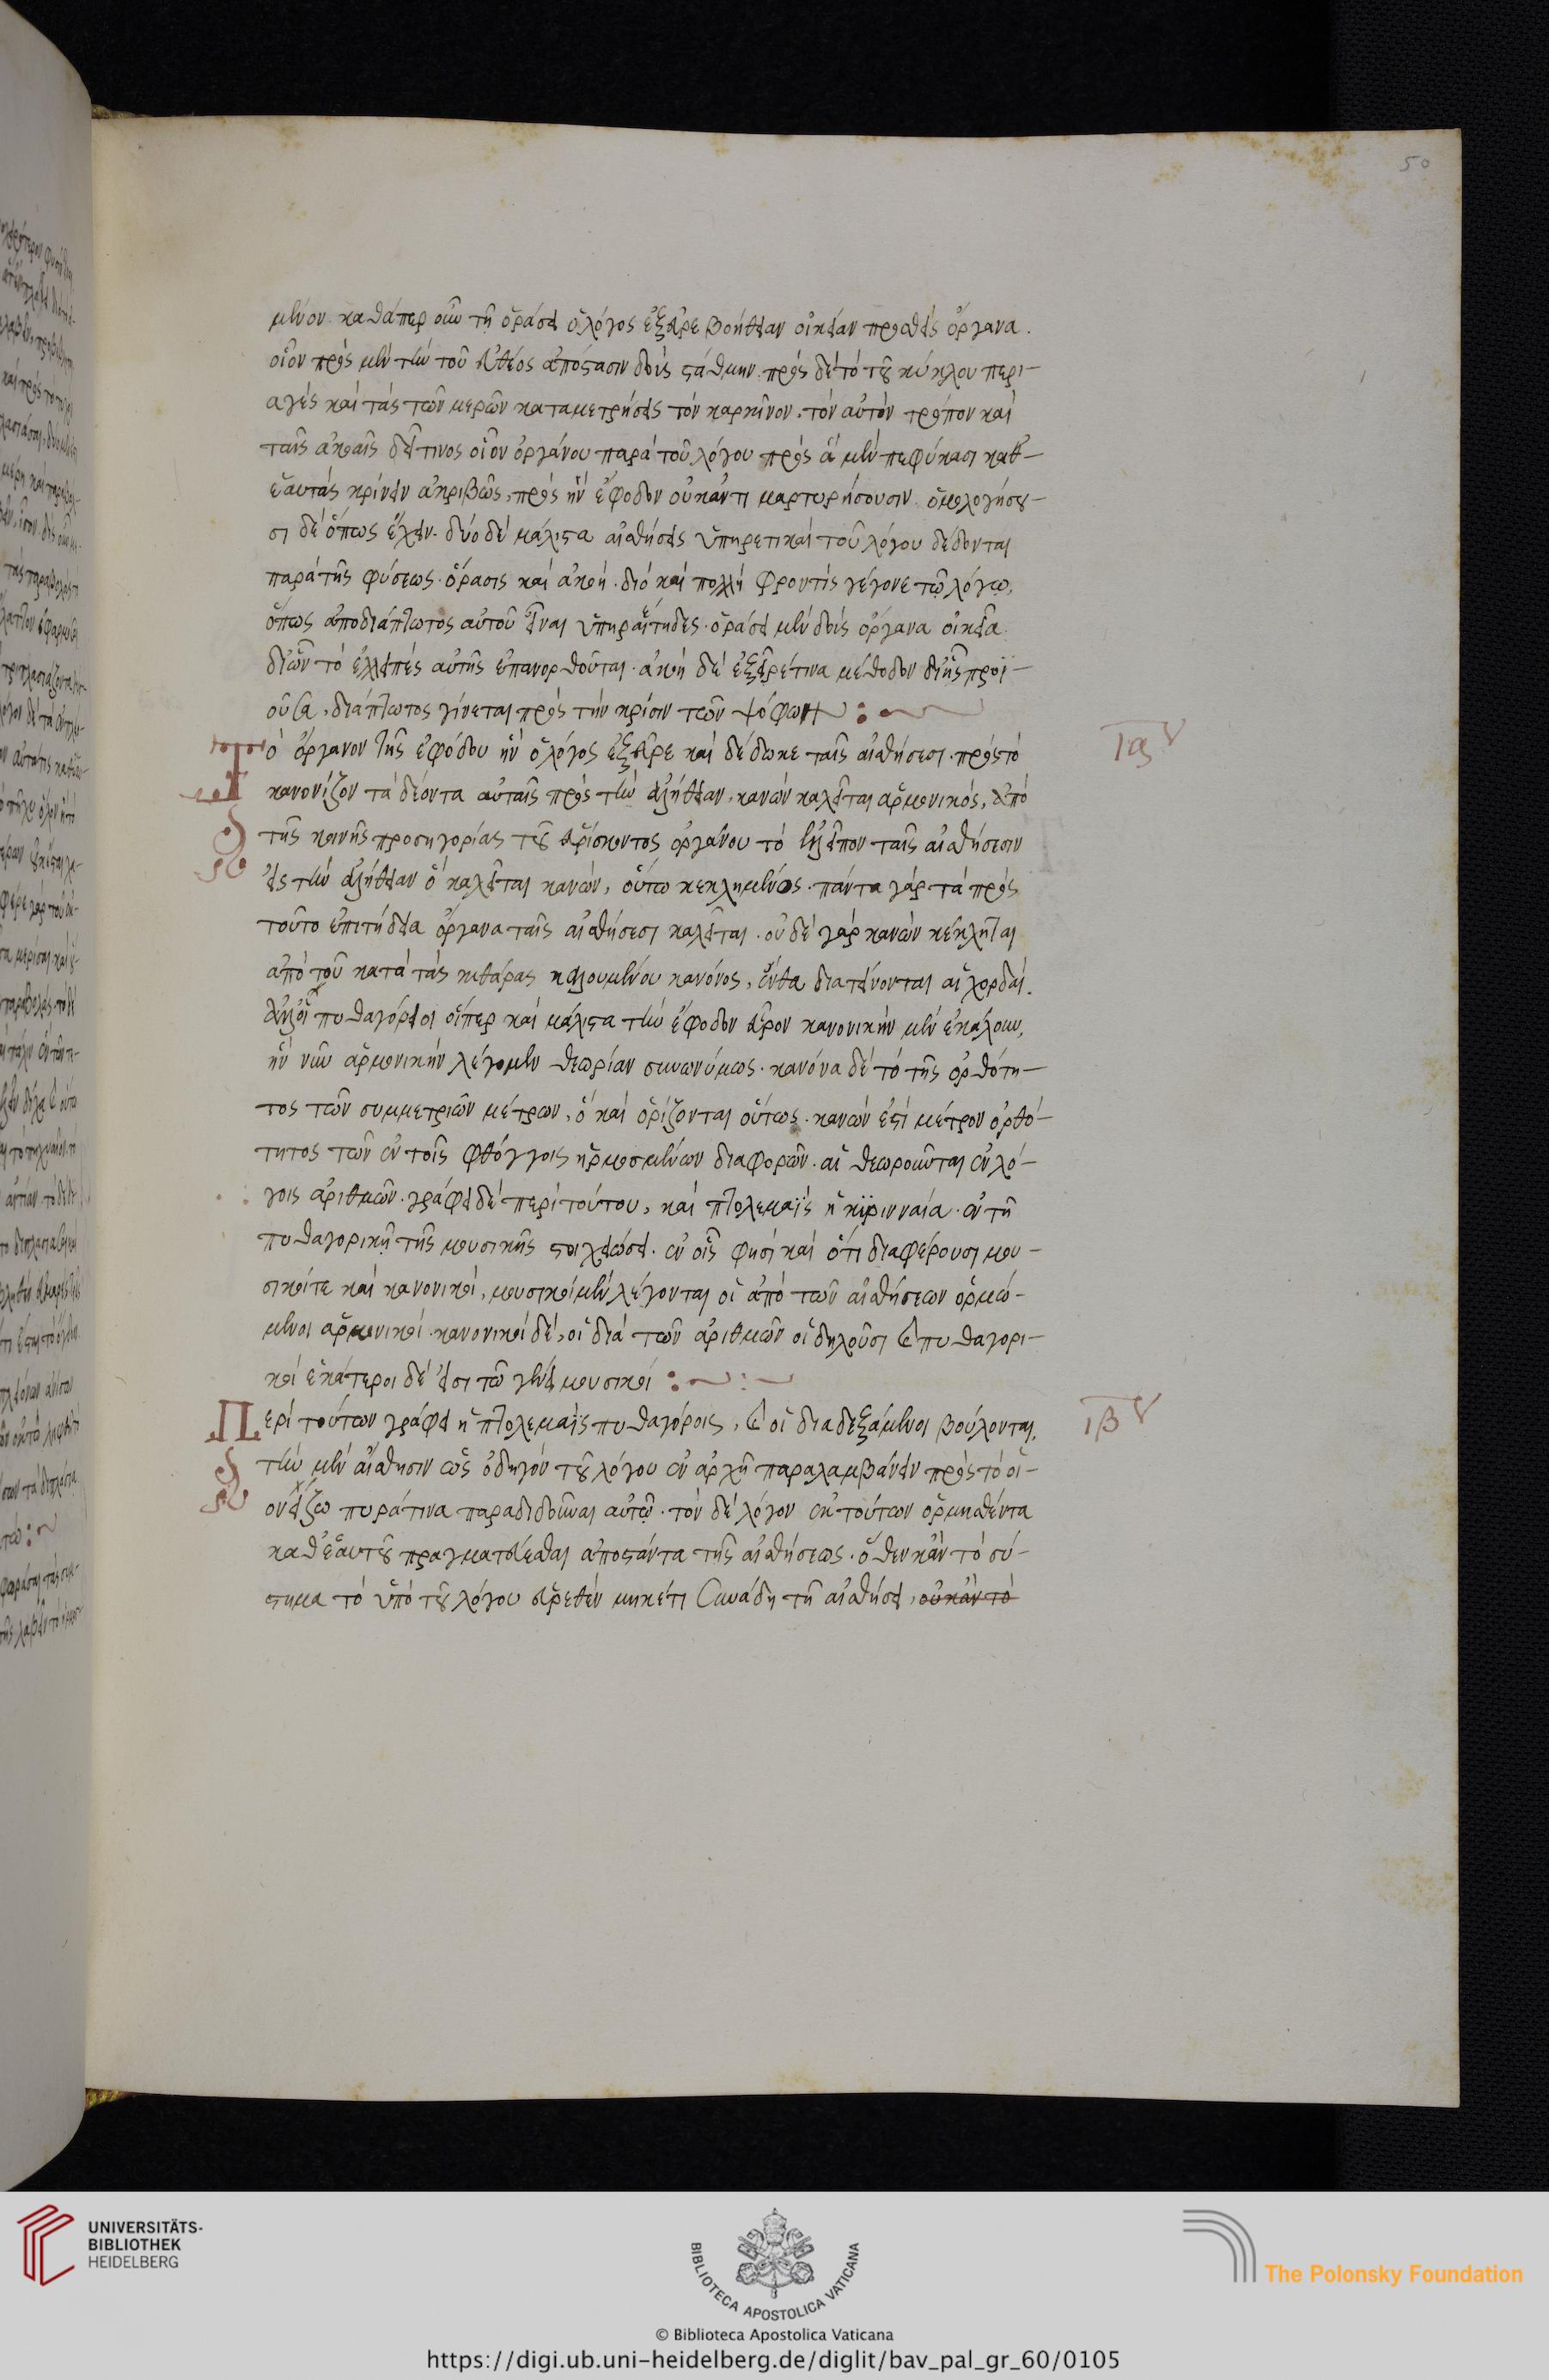 50
μένον. καθάπερ οὖν τῇ ὁράσει ὁ λόγος ἐξεῦρε βοήθειαν οἰκείαν προσθεὶς ὄργανα.
οἷον πρὸς μὲν τὴν τοῦ εὐθέος ἀπότασιν δοὺς στάθμην. πρὸς δὲ τὸ τοῦ κύκλου περι-
αγὲς καὶ τὰς τῶν μερῶν καταμετρήσεις τὸν καρκῖνον. τὸν αὐτὸν τρόπον καὶ
ταῖς ἀκοαῖς δεῖ τινος οἷον ὀργάνου παρὰ τοῦ λόγου πρὸς ἃ μὲν πεφύκασι καθ-
ἑαυτὰς κρίνειν ἀκριβῶς, πρὸς ἣν ἔφοδον οὐκ ἀντιμαρτυρήσουσιν. ὁμολογήσου-
σι δὲ ὅπως ἔχειν. δύο δὲ μάλιστα αἰσθήσεις ὑπηρετικαὶ τοῦ λόγου δέδονται
παρὰ τῆς φύσεως. ὅρασις καὶ ἀκοή. διὸ καὶ πολλὴ φροντὶς γέγονε τῷ λόγῳ,
ὅπως ἀποδιάπτωτος αὐτοῦ εἶναι ὑπηρέτηδες. ὁράσει μὲν δοὺς ὄργανα οἰκεῖα
δι' ὧν τὸ ἐλλειπὲς αὐτῆς ἐπανορθοῦται. ἀκοῇ δὲ ἐξεῦρέ τινα μέθοδον δι' ἧς προϊ-
οῦσα, διάπτωτος γίνεται πρὸς τὴν κρίσιν τῶν ψόφων :
Τὸ ὄργανον τῆς ἐφόδου ἣν ὁ λόγος ἐξεῦρε καὶ δέδωκε ταῖς αἰσθήσεσι. πρὸς τὸ
ια
κανονίζον τὰ δέοντα αὐταῖς πρὸς τὴν ἀλήθειαν, κανὼν καλεῖται ἁρμονικός, ἀπὸ
τῆς κοινῆς προσηγορίας τοῦ εὑρίσκοντος ὀργάνου τὸ ἐλλεῖπον ταῖς αἰσθήσεσιν
εἰς τὴν ἀλήθειαν ὃ καλεῖται κανών, οὕτω κεκλημένος. πάντα γὰρ τὰ πρὸς
τοῦτο ἐπιτήδεια ὄργανα ταῖς αἰσθήσεσι καλεῖται. οὐδὲ γὰρ κανὼν κέκληται
ἀπὸ τοῦ κατὰ τὰς κιθάρας καλουμένου κανόνος, ἔνθα διατείνονται αἱ χορδαί.
ἀλλ' οἱ πυθαγόρειοι οἵπερ καὶ μάλιστα τὴν ἔφοδον εὗρον κανονικὴν μὲν ἐκάλουν,
ἣν νῦν ἁρμονικὴν λέγομεν θεωρίαν συνωνύμως. κανόνα δὲ τὸ τῆς ὀρθότη-
τος τῶν συμμετριῶν μέτρων, ὃ καὶ ὁρίζονται οὕτως. κανών ἐστὶ μέτρον ὀρθό-
τητος τῶν ἐν τοῖς φθόγγοις ἡρμοσμένων διαφορῶν. αἳ θεωροῦνται ἐν λό-
γοις ἀριθμῶν. γράφει δὲ περὶ τούτου, καὶ πτολεμαῒς ἡ κϋρινναία. ἐν τῇ
πυθαγορικῇ τῆς μουσικῆς στοιχειώσει. ἐν οἷς φησὶ καὶ ὅτι διαφέρουσι μου-
σικοί τε καὶ κανονικοί, μουσικοὶ μὲν λέγονται οἱ ἀπὸ τῶν αἰσθήσεων ὁρμώ-
μενοι ἁρμονικοί. κανονικοὶ δὲ, οἱ διὰ τῶν ἀριθμῶν οἱ δηλοῦσι καὶ πυθαγορι-
κοὶ ἑκάτεροι δὲ εἰσι τῷ γένει μουσικοί :
Περὶ τούτων γράφει ἡ πτολεμαῒς πυθαγόροις, καὶ οἱ διαδεξάμενοι βούλονται,
ιβ
τὴν μὲν αἴσθησιν ὡς ὁδηγὸν τοῦ λόγου ἐν ἀρχῇ παραλαμβάνειν πρὸς τὸ οἱ-
ονεὶ ζωπυρά τινα παραδιδόναι αὐτῷ. τὸν δὲ λόγον ἐκ τούτων ὁρμηθέντα
καθ' ἑαυτοῦ πραγματεύεσθαι ἀποστάντα τῆς αἰσθήσεως. ὅθεν κἂν τὸ σύ-
στημα τὸ ὑπὸ τοῦ λόγου εὑρεθὲν μηκέτι συνάδῃ τῇ αἰσθήσει, οὐκὰν τὸ
UNIVERSITÄTS-
BIBLIOTHEK
HEIDELBERG
BIBLIOTECA APOSTOLICA VATICANA
The Polonsky Foundation
© Biblioteca Apostolica Vaticana
https://digi.ub.uni-heidelberg.de/diglit/bav_pal_gr_60/0105